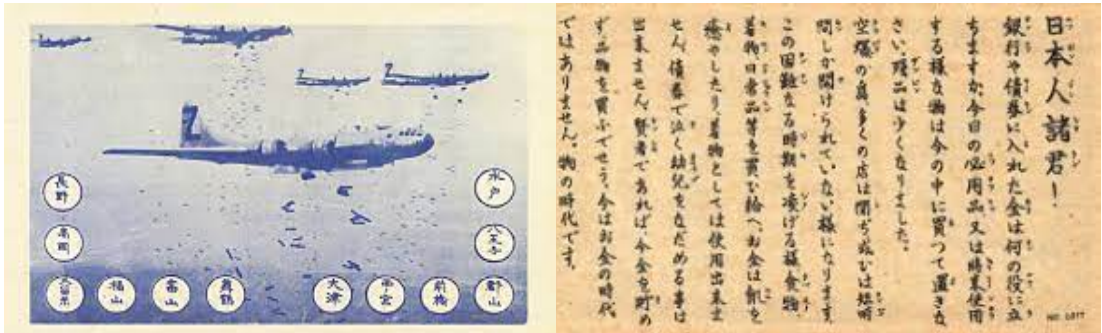 水戸
八王子
郡山
前橋
西宮
大津
舞鶴
富山
福山
久留米
高岡
長野
日本人諸君!
銀行や債券に入れた金は何の役に立
ちますか、今日の必用品又は将来使用
する様な物は今の中に買つて置きな
さい。賍品は少くなりました。
空爆の為、多くの店は閉ぢ或ひは短時
間しか開けられていない様になります。
この困難なる時期を凌げる様食物
着物、日常品等を買ひ給へ。お金は飢を
癒やしたり、着物としては使用出来ま
せん。債券で泣く幼児をなだめる事は
出来ません。賢者であれば、今金を貯め
ず、品物を買ふでせう。今はお金の時代
ではありません。物の時代です。